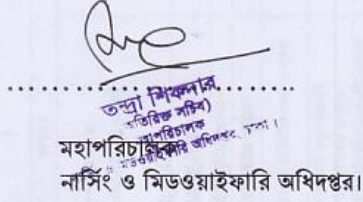 তন্দ্রা শিকদার
(অতিরিক্ত সচিব)
মহাপরিচালক
অধিদপ্তর, ঢাকা।
মহাপরিচালক
নার্সিং ও মিডওয়াইফারি অধিদপ্তর।